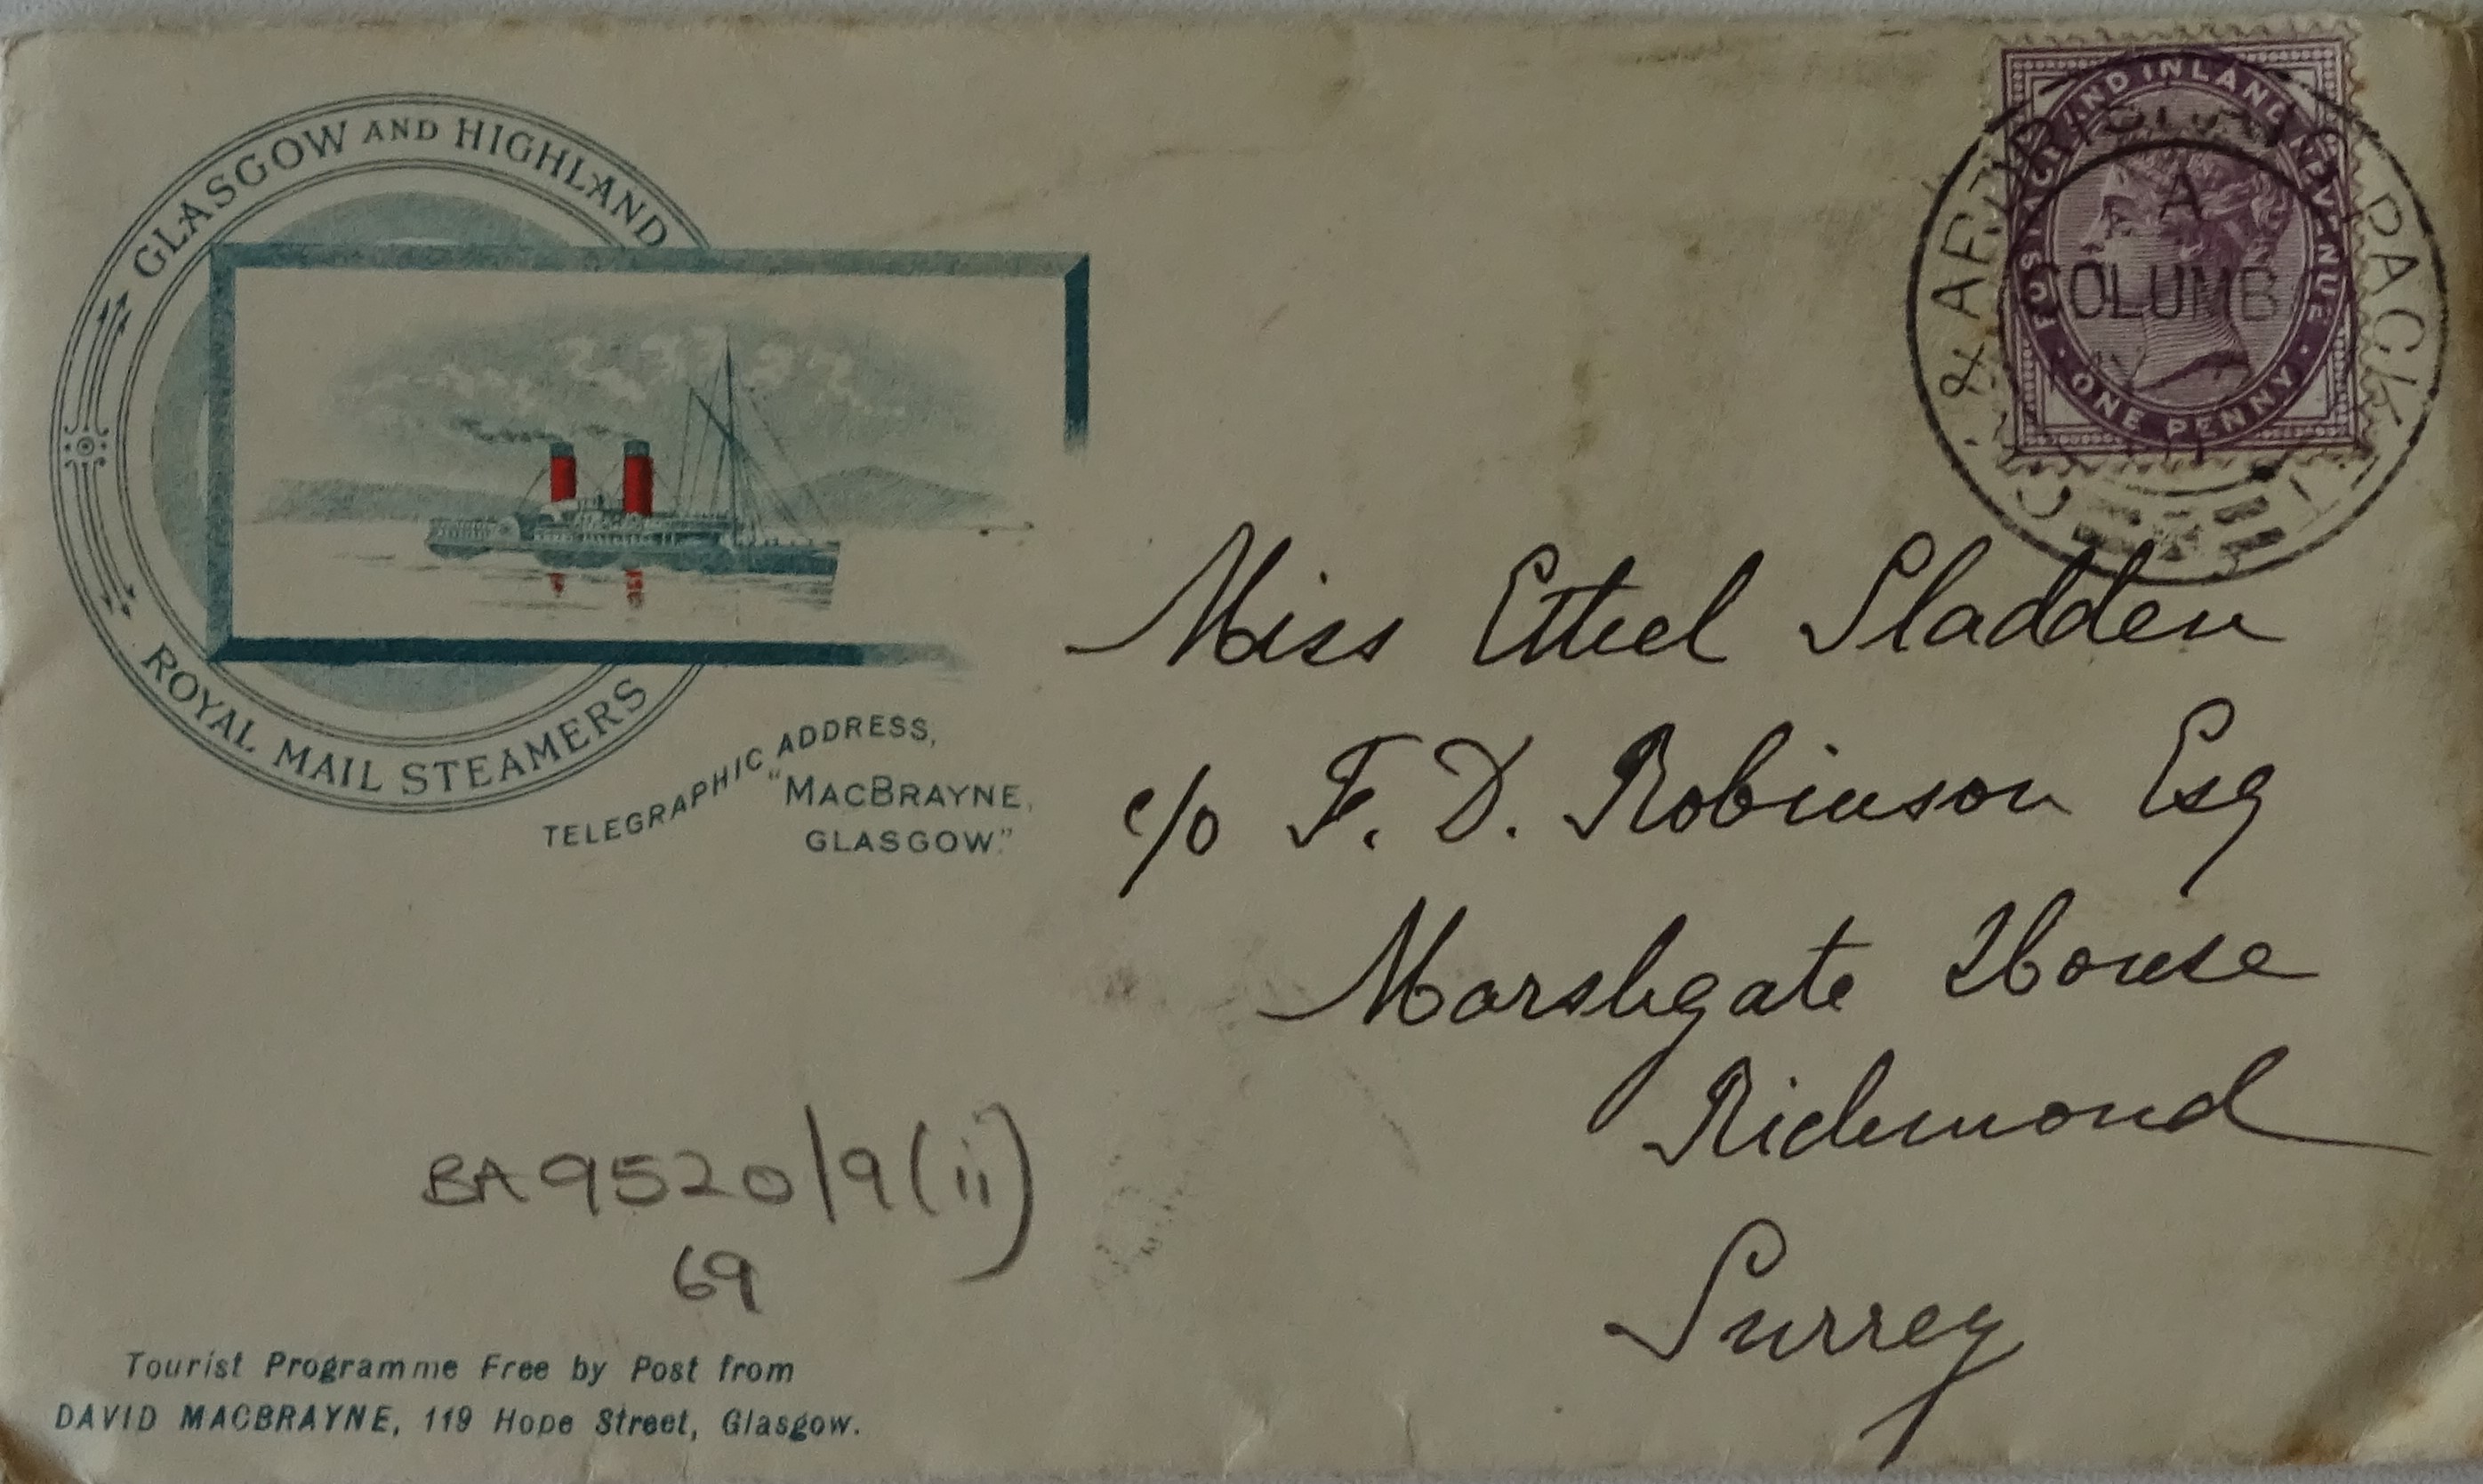 GLASGOW AND HIGHLAND
ROYAL MAIL STEAMERS
TELEGRAPHIC ADDRESS,
"MACBRAYNE,
GLASGOW."
POSTAGE AND INLAND REVENUE
ONE PENNY
& ARDRISHAIG PACKET
A
COLUMB
Miss Ethel Sladden
c/o F. D. Robinson Esq
Marshgate House
Richmond
Surrey
BA9520/9(ii)
69
Tourist Programme Free by Post from
DAVID MACBRAYNE, 119 Hope Street, Glasgow.